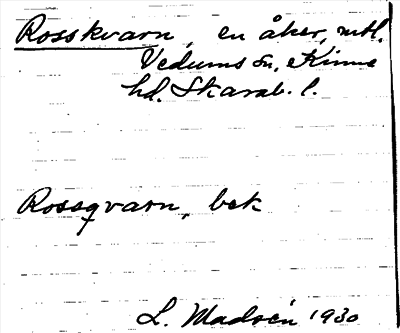 Rosskvarn, en åker, utl.
Vedums sn, Kinne
hd. Skarab. l.
Rossqvarn, bek
L. Madsén 1930